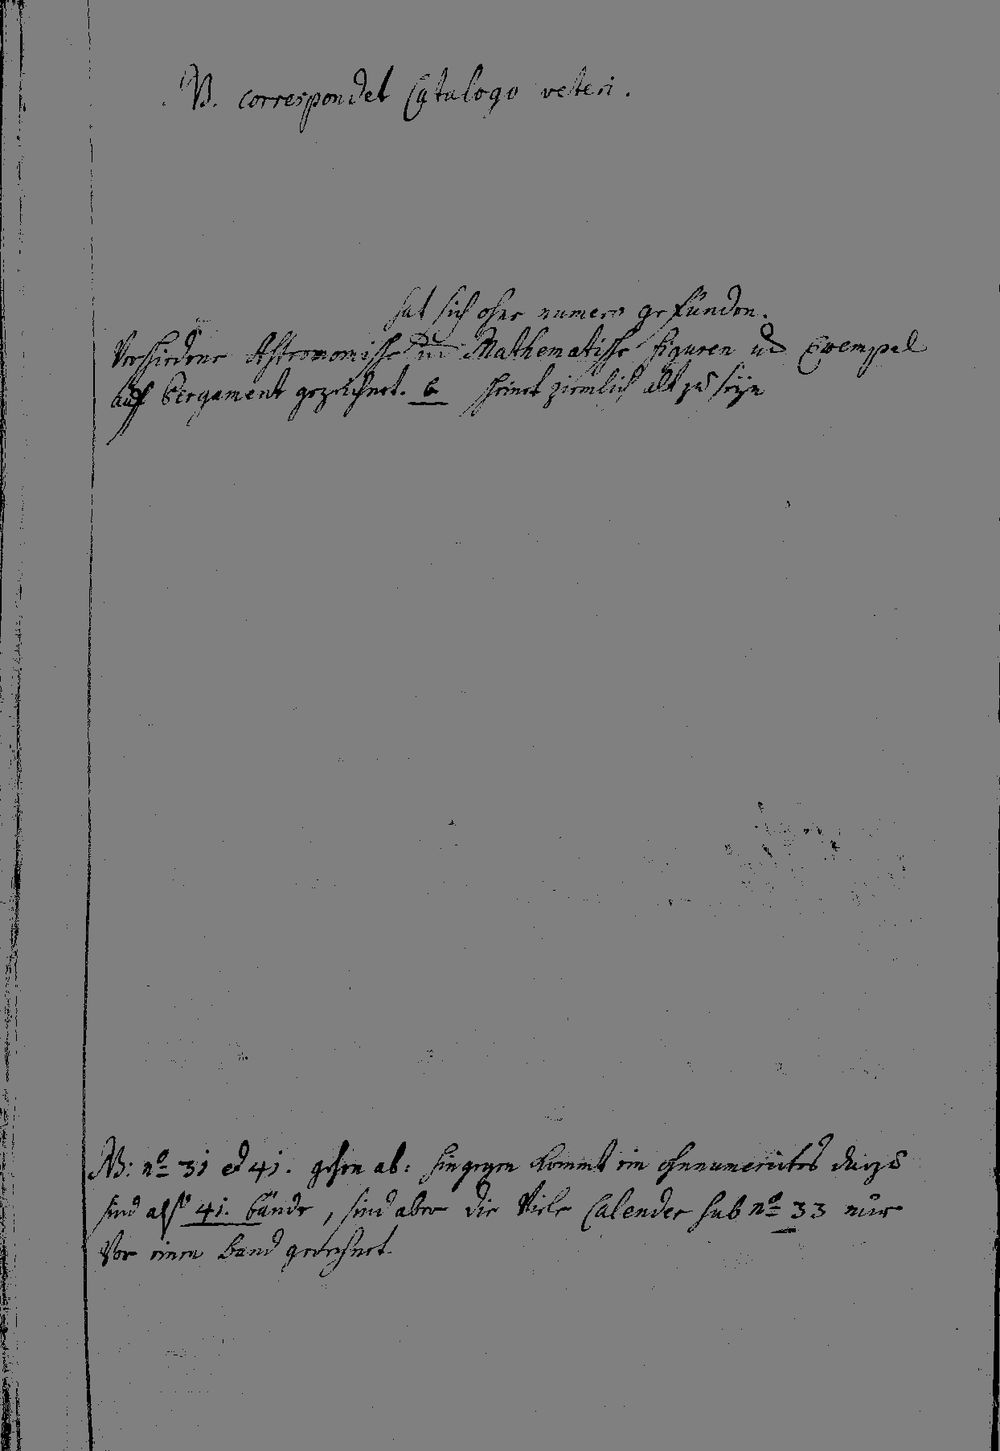 NB. correspondet Catalogo veteri.
hat sich ohne numero gefunden.
Verschiedene Astronomische und Mathematische figuren und Exempel
auf Pergament gezeichnet. scheinet ziemlich alt zu seÿn
NB: no 31 et 41. gehen ab: hingegen kommt ein ohnnumerirtes dazu
sind also 41. bände, sind aber die Viele Calender sub no 33 nur
vor einen band gerechnet.